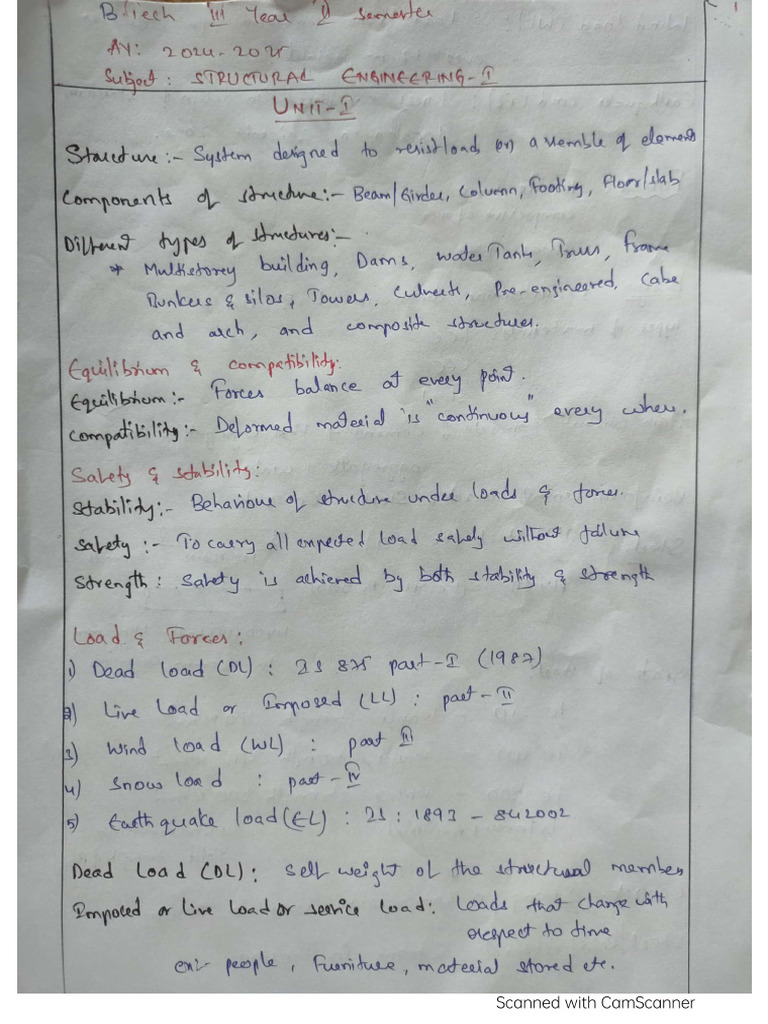 B.Tech III Year I semester
1
AY: 2024-2025
Subject: STRUCTURAL ENGINEERING-I
UNIT-I
Structure:- System designed to resist loads (or) assemble of elements
Components of structure:- Beam/Girder, Column, Footing, Floor/slab
Different types of structures:-
* Multistorey building, Dams, water Tank, Truss, frame
Bunkers & silos, Towers, Culverts, Pre-engineered, Cabe
and arch, and composite structures.
Equilibrium & compatibility:
Equilibrium:- Forces balance at every point.
Compatibility:- Deformed material is "continuous" every where.
Safety & stability:
Stability:- Behaviour of structure under loads & forces.
Safety :- To carry all expected load safely without failure
Strength: Safety is achieved by both stability & strength
Load & Forces:
1) Dead load (DL) : IS 875 part-I (1987)
2) Live Load or Imposed (LL) : part-II
3) Wind load (WL) : part III
4) Snow load : part-IV
5) Earthquake load (EL) : IS : 1893 - 842002
Dead Load (DL): Self weight of the structural member
Imposed or Live Load or service load: Loads that change with
respect to time
ex:- people, Furniture, material stored etc.
Scanned with CamScanner